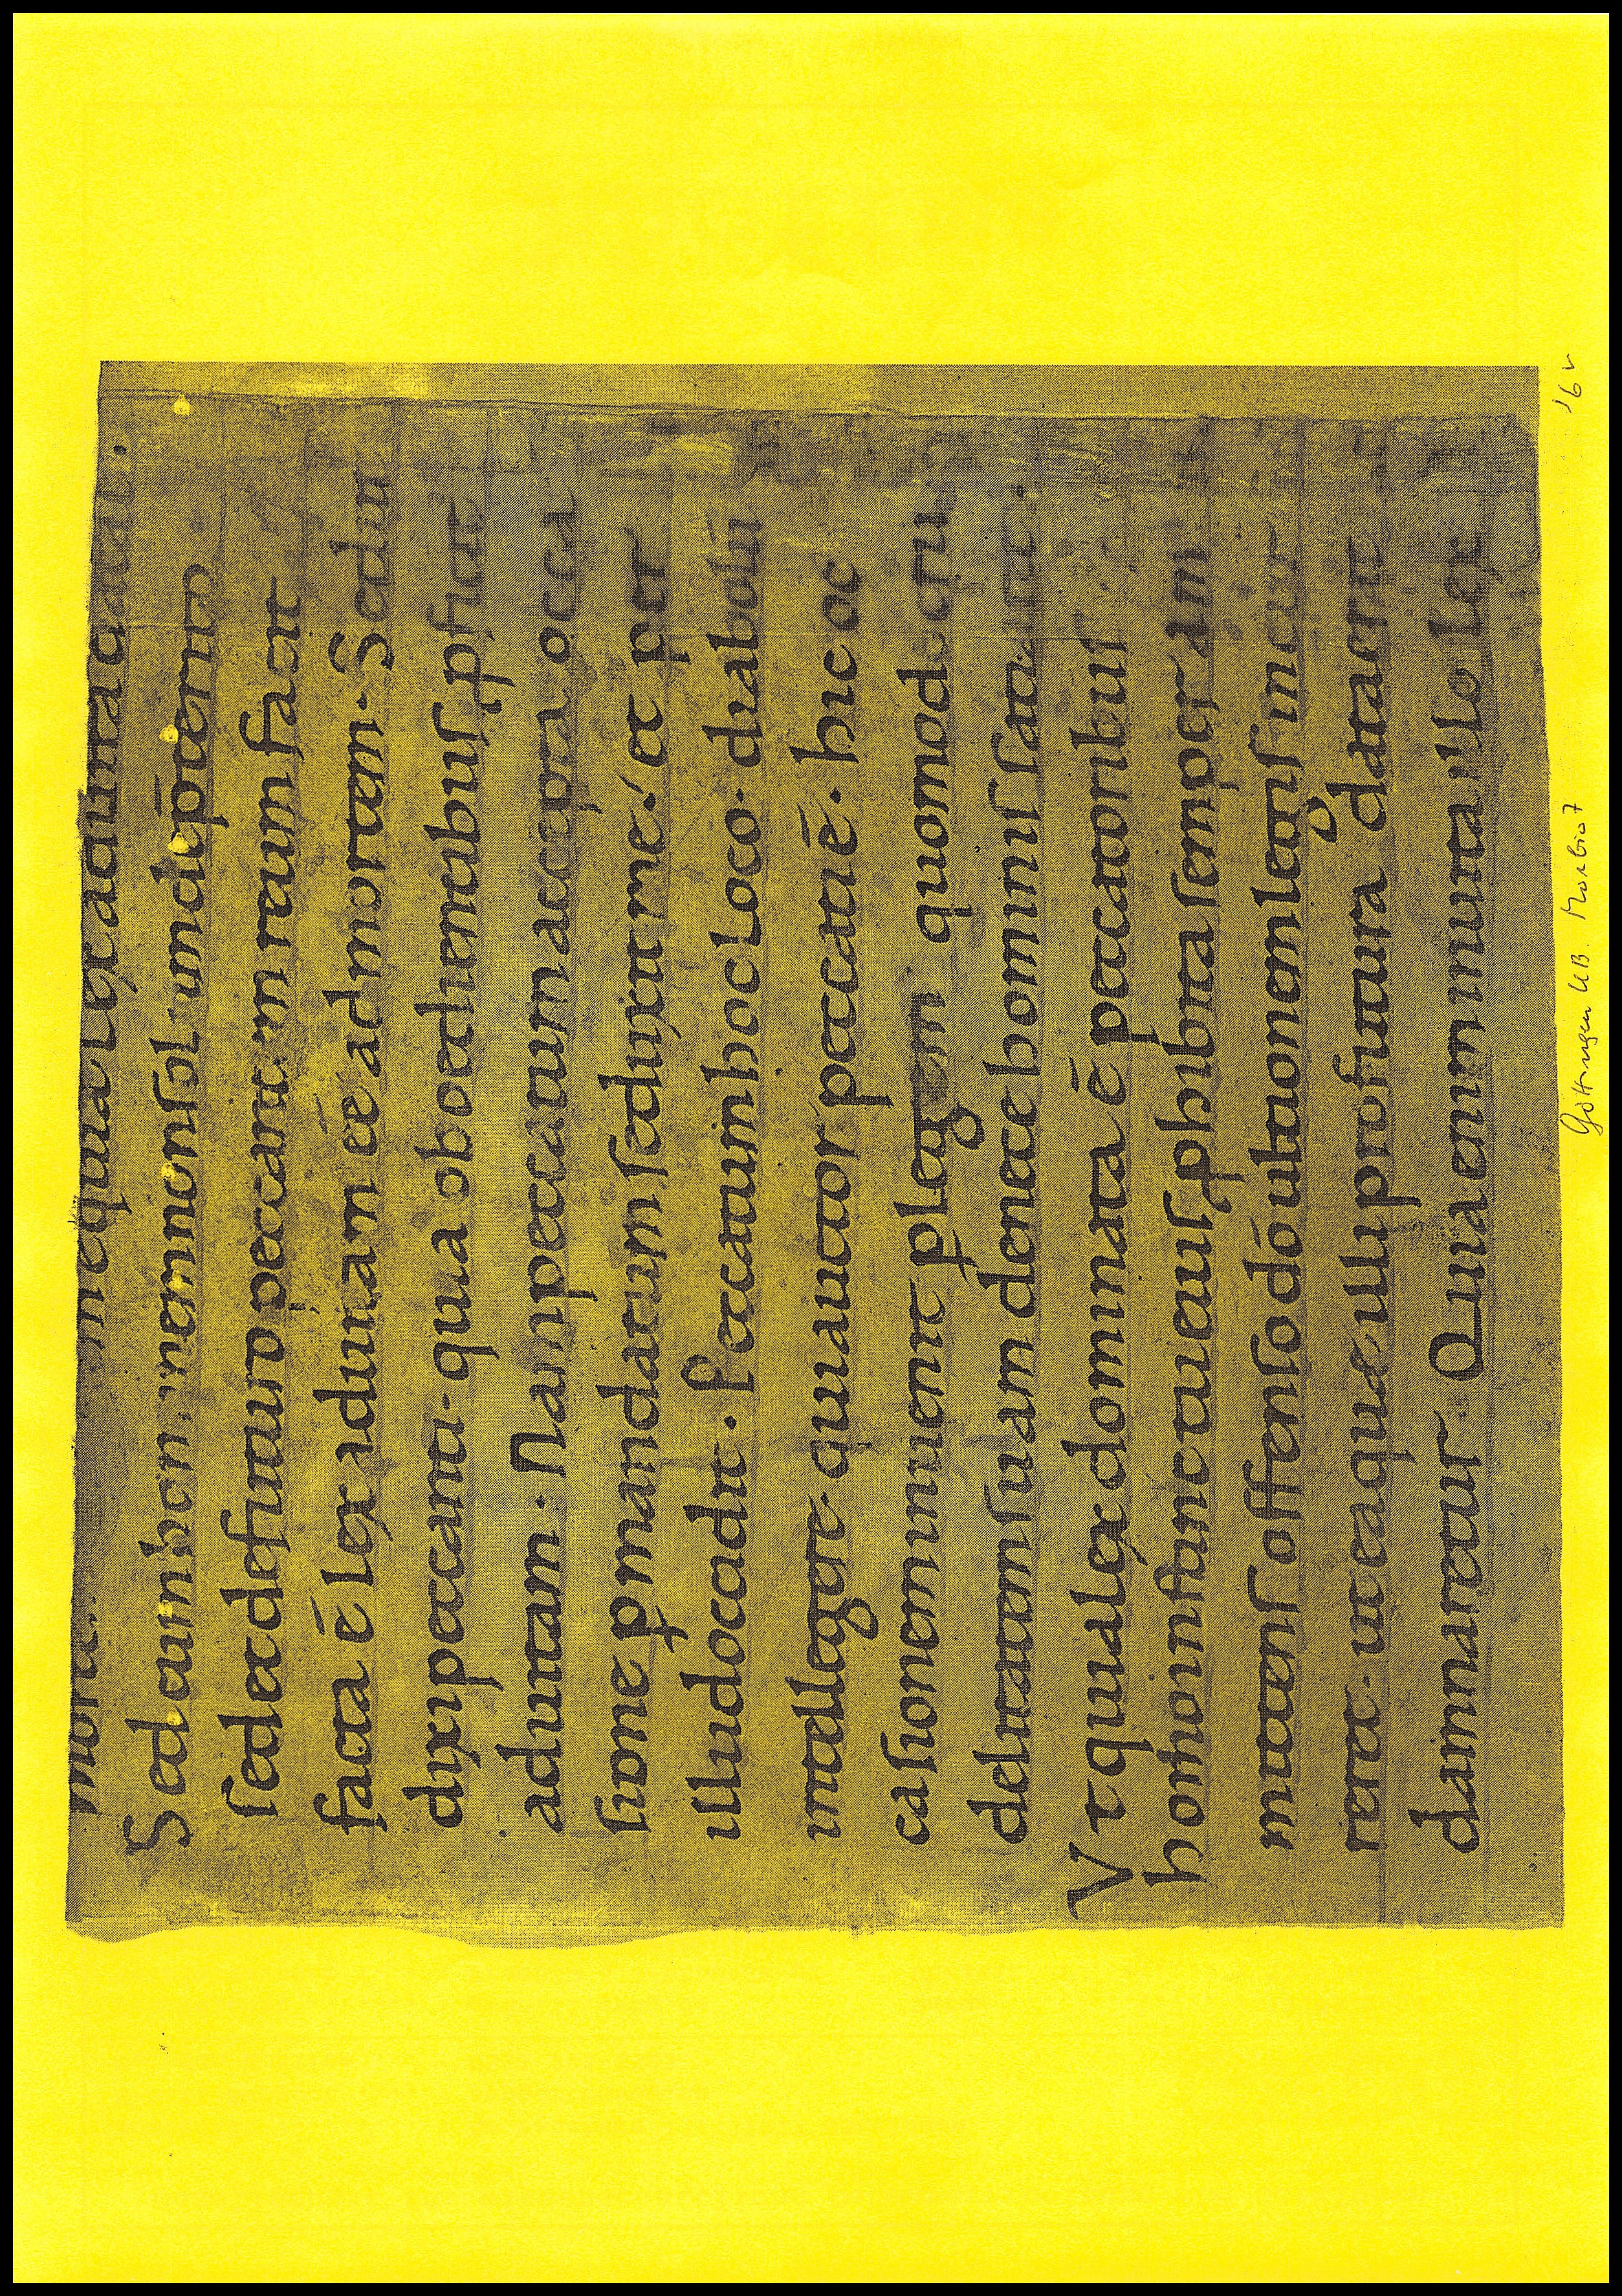 mori
in equa lex ad uita
Sed cum hominem non solum de pterito
sed et de futuro peccantem reum faciat
facta ē lex ad uitam ēē ad mortem. Sed in
dixi peccanti. qua oboedientibus pficit
ad uitam. Nam peccatum accepta occa
sione p mandatum seduxit me. et per
illud occidit. Peccatum hoc loco. diabolū
intellegere. qui auctor peccati ē. hic oc
casionem inuenit p legem quomodo cru
delitatem suam de nece hominis satiaret.
Ut quia lex dominata ē peccatoribus
homo instinctu eius phibita semper am
mittens offenso dō ultionem legis incur
reret. ut ea quae illi profutura data erat
damnaretur. Quia enim inuita illo lex
Göttingen UB. Morbio 7
16v